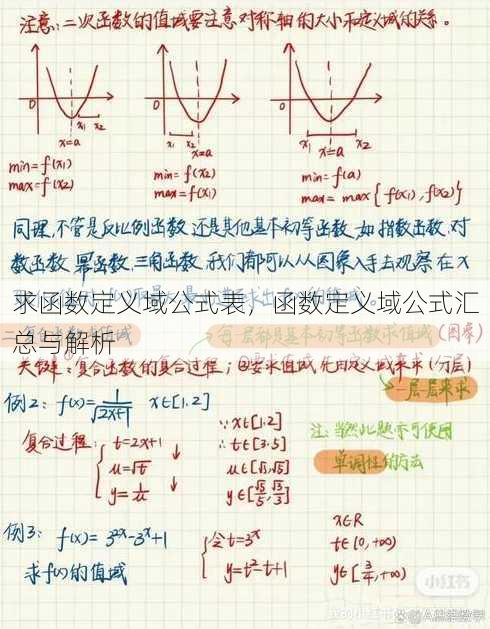 注意：二次函数的值域要注意对称轴的大小和定义域的关系。
0 x₁ x₂ x=a
0 x₁ x₂ x=a
0 x₁ x=a x₂
min=f(x₁)
max=f(x₂)
min=f(x₂)
max=f(x₁)
min=f(a)
max=max{f(x₁),f(x₂)}
同理,不管是反比例函数还是其他基本初等函数,如指数函数,对
数函数,幂函数,三角函数,我们都可以从图象入手去观察在x
求函数定义域公式表，函数定义域公式汇
总与解析
每一层都是基本初等函数求值域(图象)
关键:①复合函数的复合过程;②要求值域,先由定义域来求(分层)
一层层来求
例2: f(x)=1/√(2x+1) x∈[1,2]
复合过程:
t=2x+1 ↓
u=√t
y=1/u ↓
∵x∈[1,2]
∴t∈[3,5]
u∈[√3,√5]
y∈[√5/5,√3/3]
注:当然此题亦可使用
单调性的方法
例3: f(x)=3²ˣ-3ˣ+1
求f(x)的值域
令t=3ˣ
y=t²-t+1
x∈R
t∈(0,+∞)
y∈[3/4,+∞)
小红书